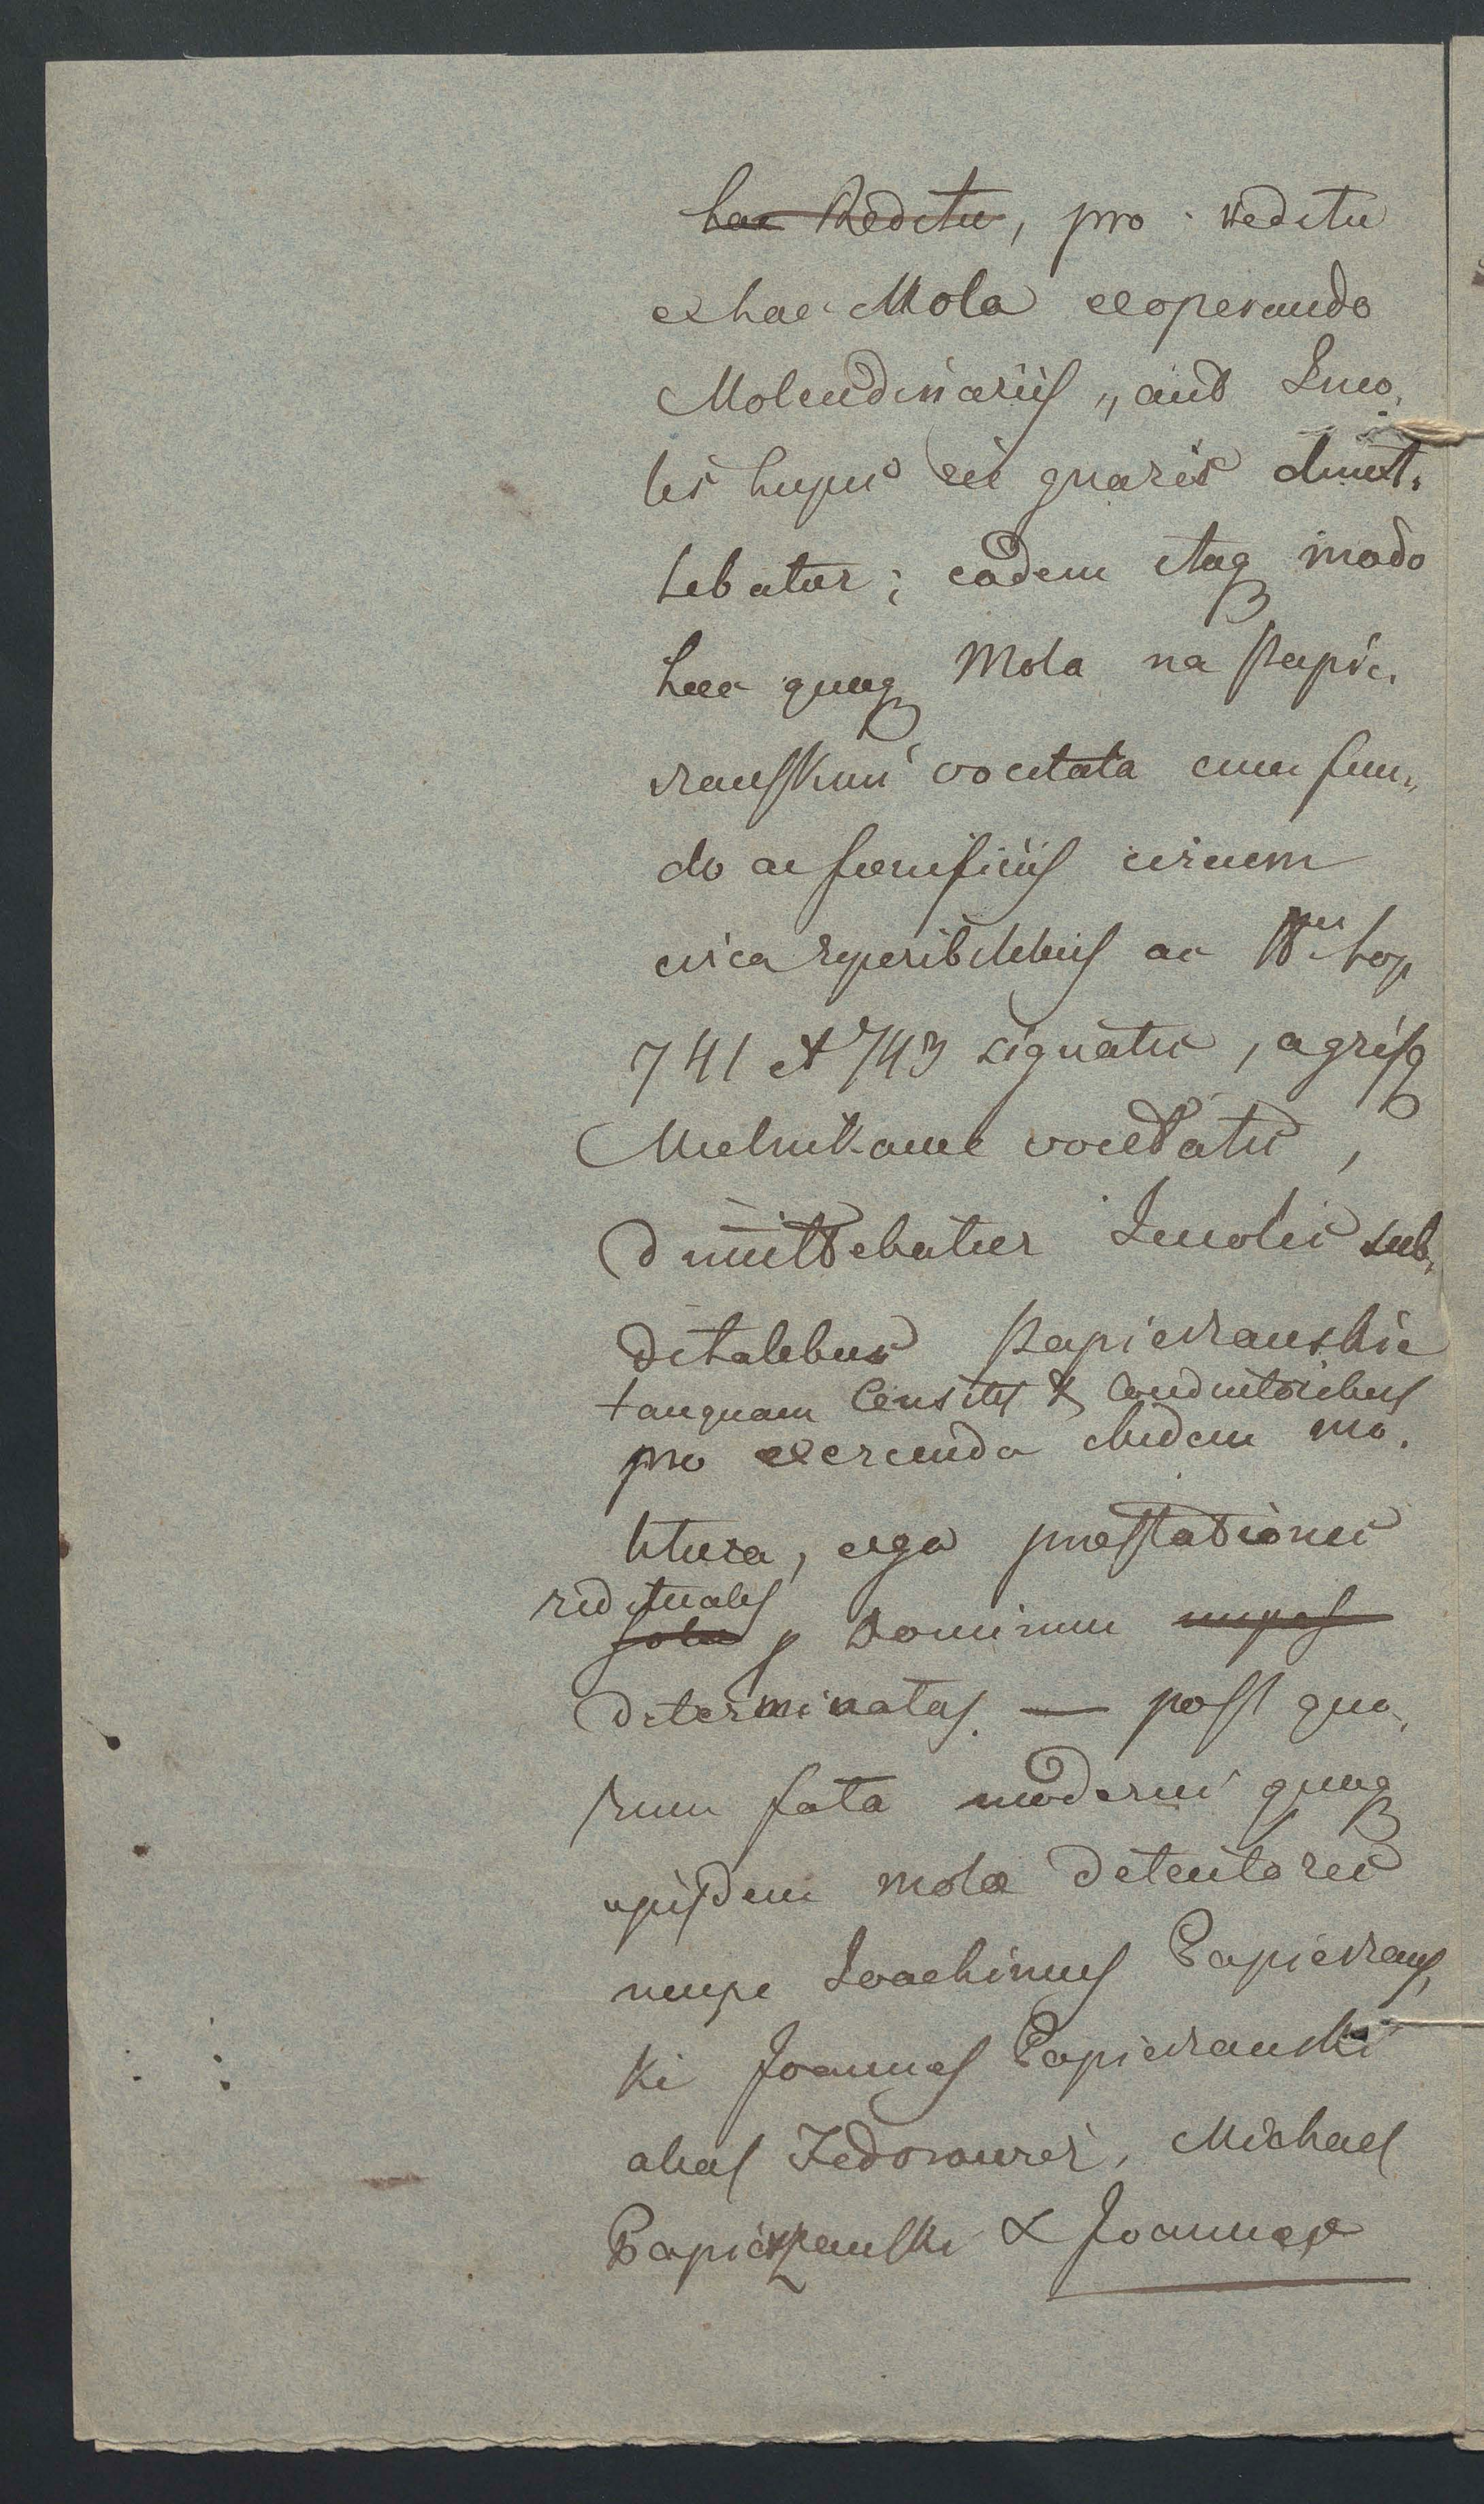 hac Reditu, pro reditu
ex hac Mola exoperando
Molendinariis, aut Inco,
lis hujus rei gnaris dimit,
tebatur; eadem itaq modo
haec quoq Mola na Papie,
ranskim vocitata cum fun,
do ac foenificiis circum
circa reperibilibus ac Nris top
741 et 743 signatis, agrisq
Mielnikame vocitatis,
dimittebatur Incolis sub,
ditalibus Papieranskie
tanquam Censitis & Conductoribus
pro exercenda ibidem mo,
litura, erga praestationes
redituales
solu p Dominium impos
determinatas. — post quo,
rum fata moderni quoq
ejusdem molae detentores
nempe Joachimus Papierans,
ki Joannes Papieranski
alias Fedorowicz, Michael
Papieranski & Joannes